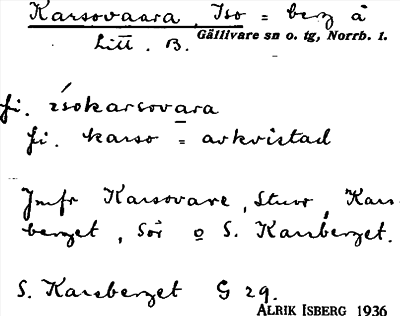 Karsovaara, Iso = berg å
Litt. B. Gällivare sn o. tg, Norrb. l.
fi. isokarsovara
fi. karso = avkvistad
Jmfr Karsovare, Stuor, Kars-
berget, Sör o S. Karsberget.
S. Karsberget G 29.
ALRIK ISBERG 1936